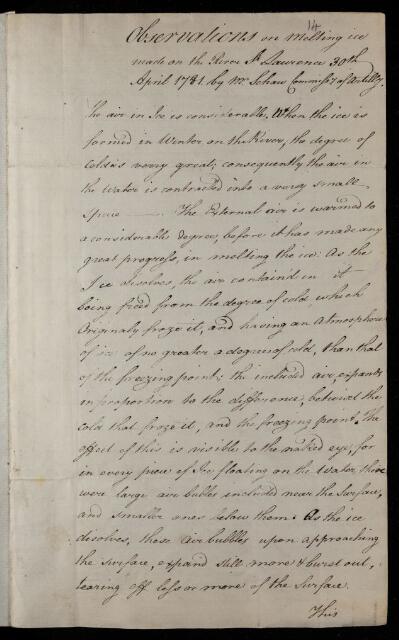 14
Observations on Melting ice
made on the River St Lawrence 30th
April 1781 by Mr Schaw Commissy of Artilly.
The air in Ice is considerable. When the ice is
formed in Winter on the River, the degree of
Cold is verry great; consequently the air in
the Water is contracted into a very small
Space — The External air is warmed to
a considerable degree, before it has made any
great progress, in melting the ice: As the
Ice desolves, the air containd in it
being freed from the degree of cold which
Originaly froze it, and having an Atmosphere
of ice of no greater a degree of cold, than that
of the freezing point; the included air, expands
in proportion to the difference, between the
cold that froze it, and the freezing point. The
effect of this is visible to the naked eye, for
in every piece of Ice floating on the Water there
were large air bubles included near the Surface,
and Smaller ones below them. As the ice
disolves, these air bubbles upon approaching
the Surface, expand still more & burst out,
tearing off less or more of the Surface.
This